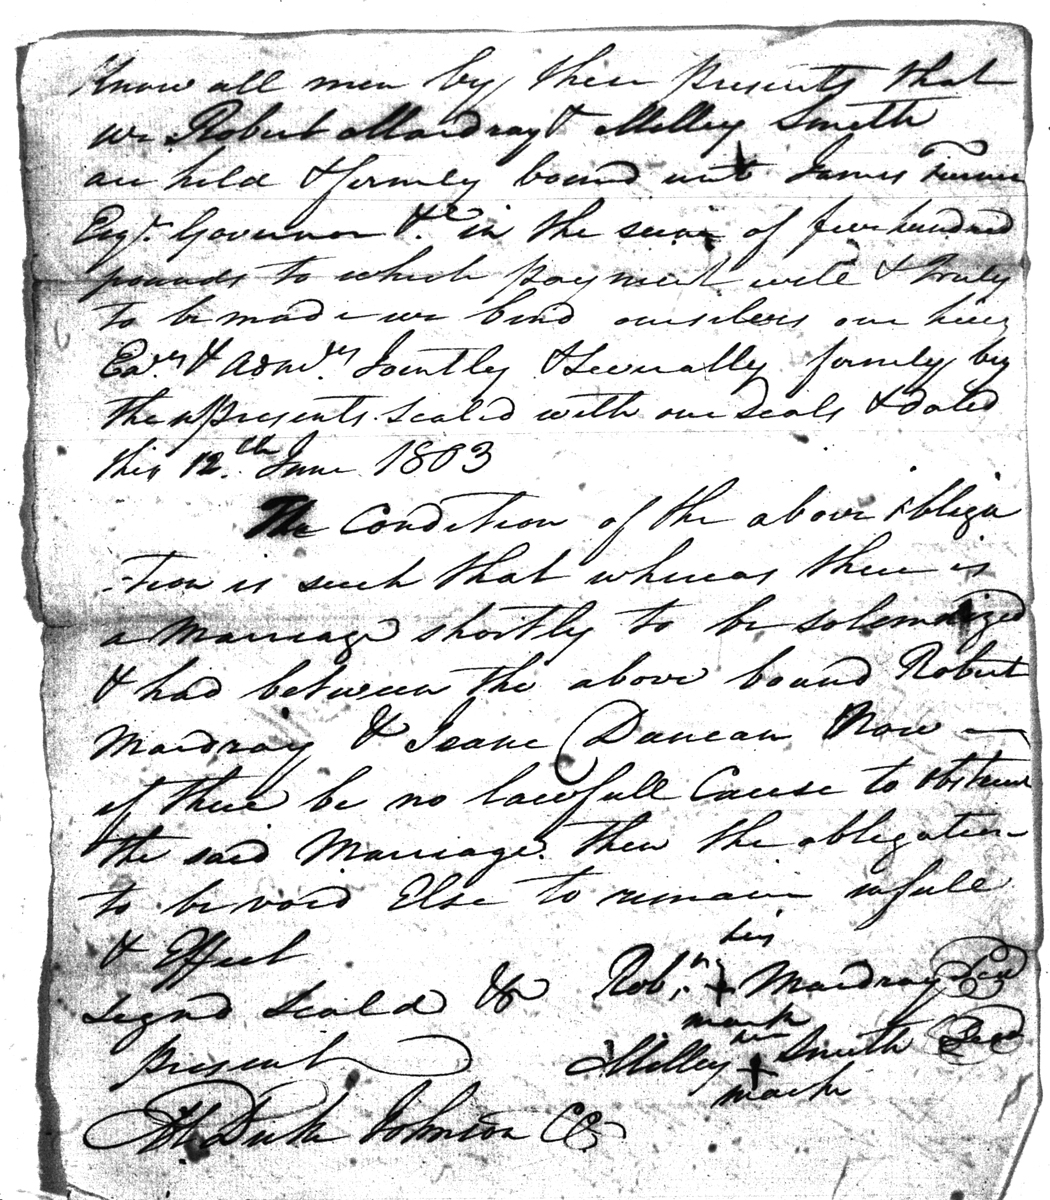 Know all men by these presents that
we Robert Mardray & Milley Smith
are held & firmly bound unto James Turner
Esqr. Governor &c in the sum of five hundred
pounds to which payment well & truly
to be made we bind ourselves our heirs
Exrs & Admrs Jointly & Severally firmly by
these presents sealed with our Seals & dated
this 12th June 1803
The Condition of the above obliga
-tion is such that whereas there is
a Marriage shortly to be solemnized
& had between the above bound Robert
Mardray & Jeane Duncan Now
if there be no lawfull Cause to obstruct
the said Marriage then the obligation
to be void Else to remain in full
& Effect
his
Signd Seald & Robt + Mardray Seal
mark
present Milley her + Smith Seal
mark
Duke Johnson CC